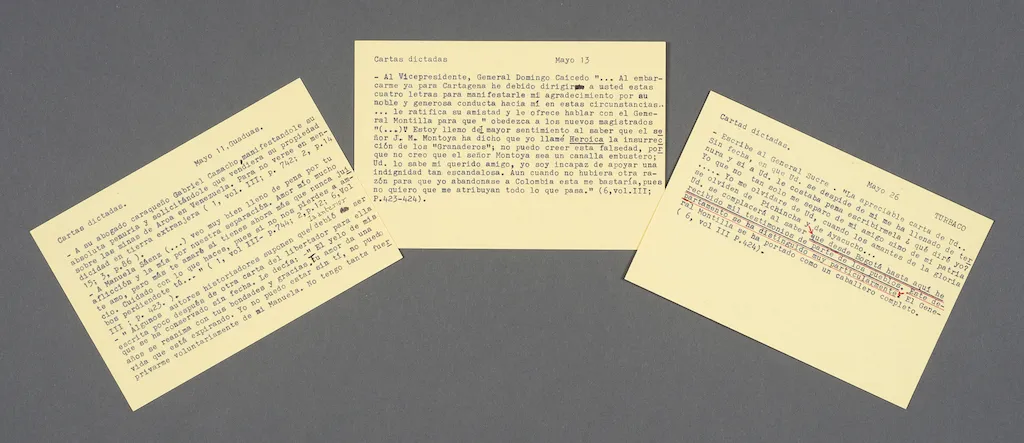 Cartas dictadas.
Mayo 11.Guaduas.
- A su abogado caraqueño Gabriel Camacho manifestandole su
absoluta penuria y solicitándole que vendiera su propiedad
sobre las minas de Aroa en Venezuela. Para no verse en men-
dicidad en tierra extranjera ( 1, vol III; P. 7421 2, p.14
15; 3, p.86 ).
- A Manuela Sáenz (...) veo muy bien lleno de pena por tu
aflicción y la mía por nuestra separación. Amor mío mucho
te amo, pero más te amaré si tienes ahora más que nunca jui
cio. Cuidado con lo que haces, pues si no nos pierdes a am-
bos perdiendote tú..." ( , vol III- P.744; 2,p.17; 6 vol
III , p. 423. ).
- " Algunos autores historiadores suponen que debió ser
escrita poco después de otra carta del libertador para ella
que se ha conservado sin fecha. Le decía: - El yelo de mis
años se reanima con tus bondades y gracias. Tu amor da una
vida que está expirando. Yo no puedo estar sin tí, no puedo
privarme voluntariamente de mi Manuela. No tengo tanta fuer
Cartas dictadas Mayo 13
- Al Vicepresidente, General Domingo Caicedo "... Al embar-
carme ya para Cartagena he debido dirigir a usted estas
cuatro letras para manifestarle mi agradecimiento por su
noble y generosa conducta hacia mí en estas circunstancias..
... le ratifica su amistad y le ofrece hablar con el Gene-
ral Montilla para que " obedezca a los nuevos magistrados
"(...)! Estoy lleno del mayor sentimiento al saber que el se
ñor J. M. Montoya ha dicho que yo llamé Heroica la insurrec
ción de los "Granaderos"; no puedo creer esta falsedad, por
que no creo que el señor Montoya sea un canalla embustero;
Ud. lo sabe mi querido amigo, yo soy incapaz de apoyar una
indignidad tan escandalosa. Aun cuando no hubiera otra ra-
zón para que yo abandonase a Colombia esta me bastaría,pues
no quiero que me atribuyan todo lo que pasa." (6,vol.III;
P.423-424).
Cartad dictadas. Mayo 26 TURBACO
- Escribe al General Sucre . "La apreciable carta de Ud..
Sin fecha, en que Ud. se despide de mi me ha llenado de ter
nura y si a Ud. le costaba pena escribirmela ¿ qué diré yo?
Yo que no tan solo me separo de mi amigo sino de mi patria
.... Yo me olvidaré de Ud. cuando los amantes de la gloria
se olviden de Pichincha y de Ayacucho...
Ud. se complacerá al saber que desde Bogotá hasta aquí he
recibido mil testimonios de parte de los pueblos. Este de-
partamento se ha distinguido muy particularmente. El Gene-
ral Montilla se ha portado como un caballero completo.
( 6, vol III P.424).